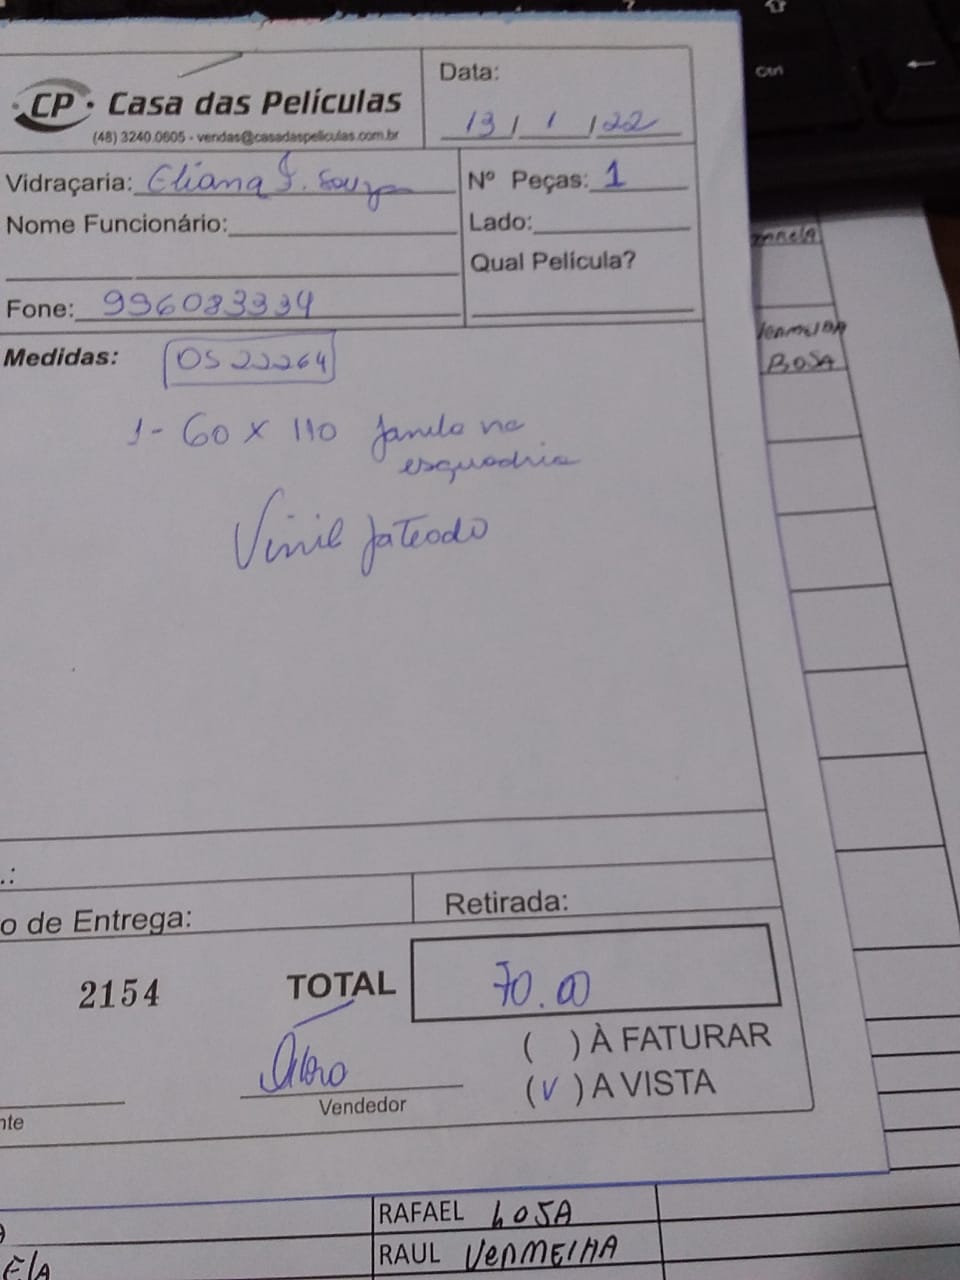 CP Casa das Películas
(48) 3240.0605 - vendas@casadaspeliculas.com.br
Data:
13 / 1 / 22
Vidraçaria: Eliana F. Souza
Nº Peças: 1
Nome Funcionário:
Lado:
Qual Película?
Fone: 996083334
Medidas: OS 22264
1- 60 x 110 Janela na
esquadria
Vinil Jateado
.:
o de Entrega:
Retirada:
2154
TOTAL 70.00
( ) À FATURAR
(V) A VISTA
Vendedor
nte
VERMELHA
ROSA
RAFAEL ROSA
RAUL VERMELHA
ELA